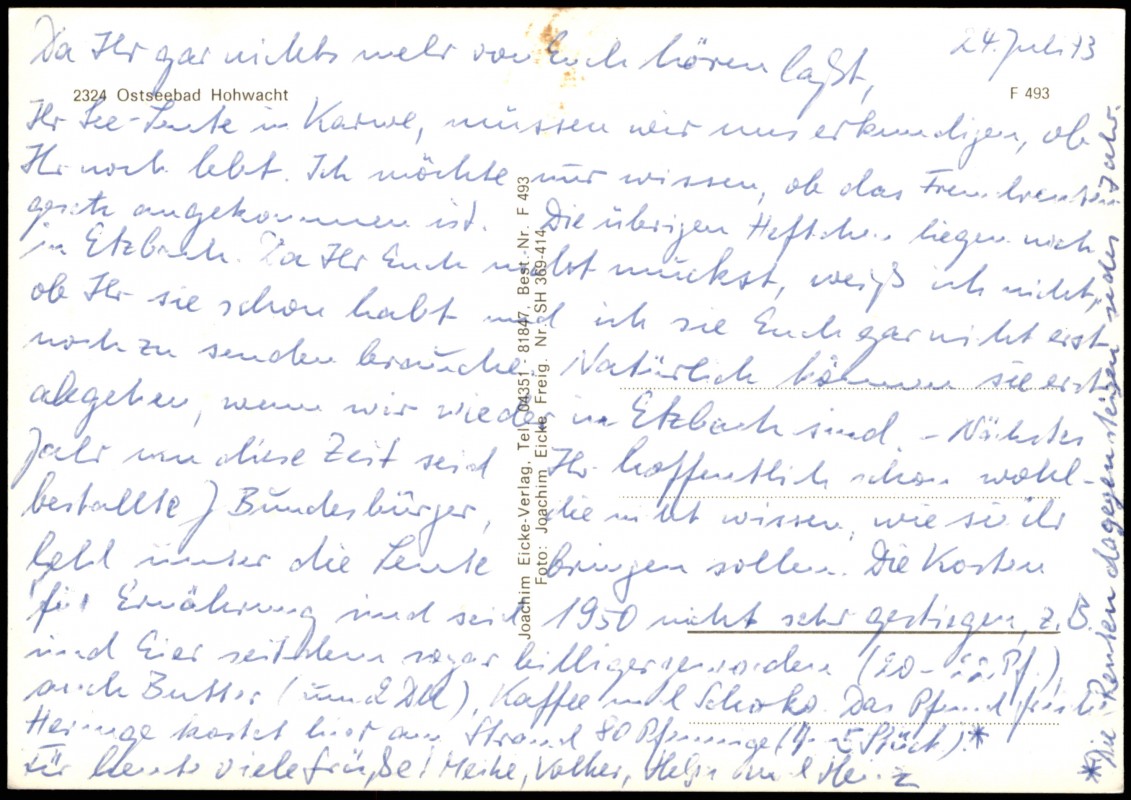 24. Juli 73
Da Ihr gar nichts mehr von Euch hören laßt,
2324 Ostseebad Hohwacht
F 493
Ihr See-Leute in Karwe, müssen wir uns erkundigen, ob
Ihr noch lebt. Ich möchte nur wissen, ob das Fremdrenten-
gesetz angekommen ist. Die übrigen Heftchen liegen noch
in Etzbach. Da Ihr Euch nicht muckst, weiß ich nicht,
ob Ihr sie schon habt und ich sie Euch gar nicht erst
noch zu senden brauche. Natürlich können sie erst
abgehen, wenn wir wieder in Etzbach sind. – Nächstes
Jahr um diese Zeit seid Ihr hoffentlich schon wohl-
bestallte Bundesbürger, die nicht wissen, wie sie ihr
Geld unter die Leute bringen sollen. Die Kosten
für Ernährung sind seit 1950 nicht sehr gestiegen, z.B.
sind Eier seitdem sogar billiger geworden (20- Pf.),
auch Butter (um 2 DM), Kaffee und Schoko. Das Pfund frische
Heringe kostet hier am Strand 80 Pfennige (4-5 Stück).*
Für heute viele Grüße! Meike, Volker, Helga und Heinz
*Die Renten dagegen steigen jedes Jahr.
Joachim Eicke-Verlag, Tel. 04351 - 81847, Best.-Nr. F 493
Foto: Joachim Eicke Freig. Nr. SH 369-414